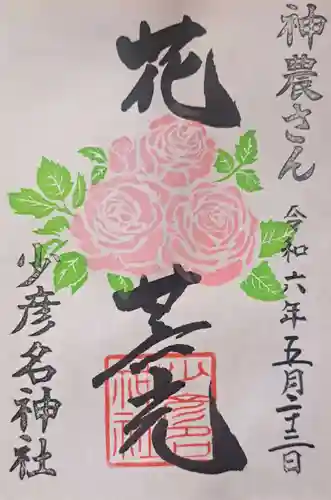 神農さん
令和六年五月二十三日
花
暮光
少彦名神社
少彦名
神社